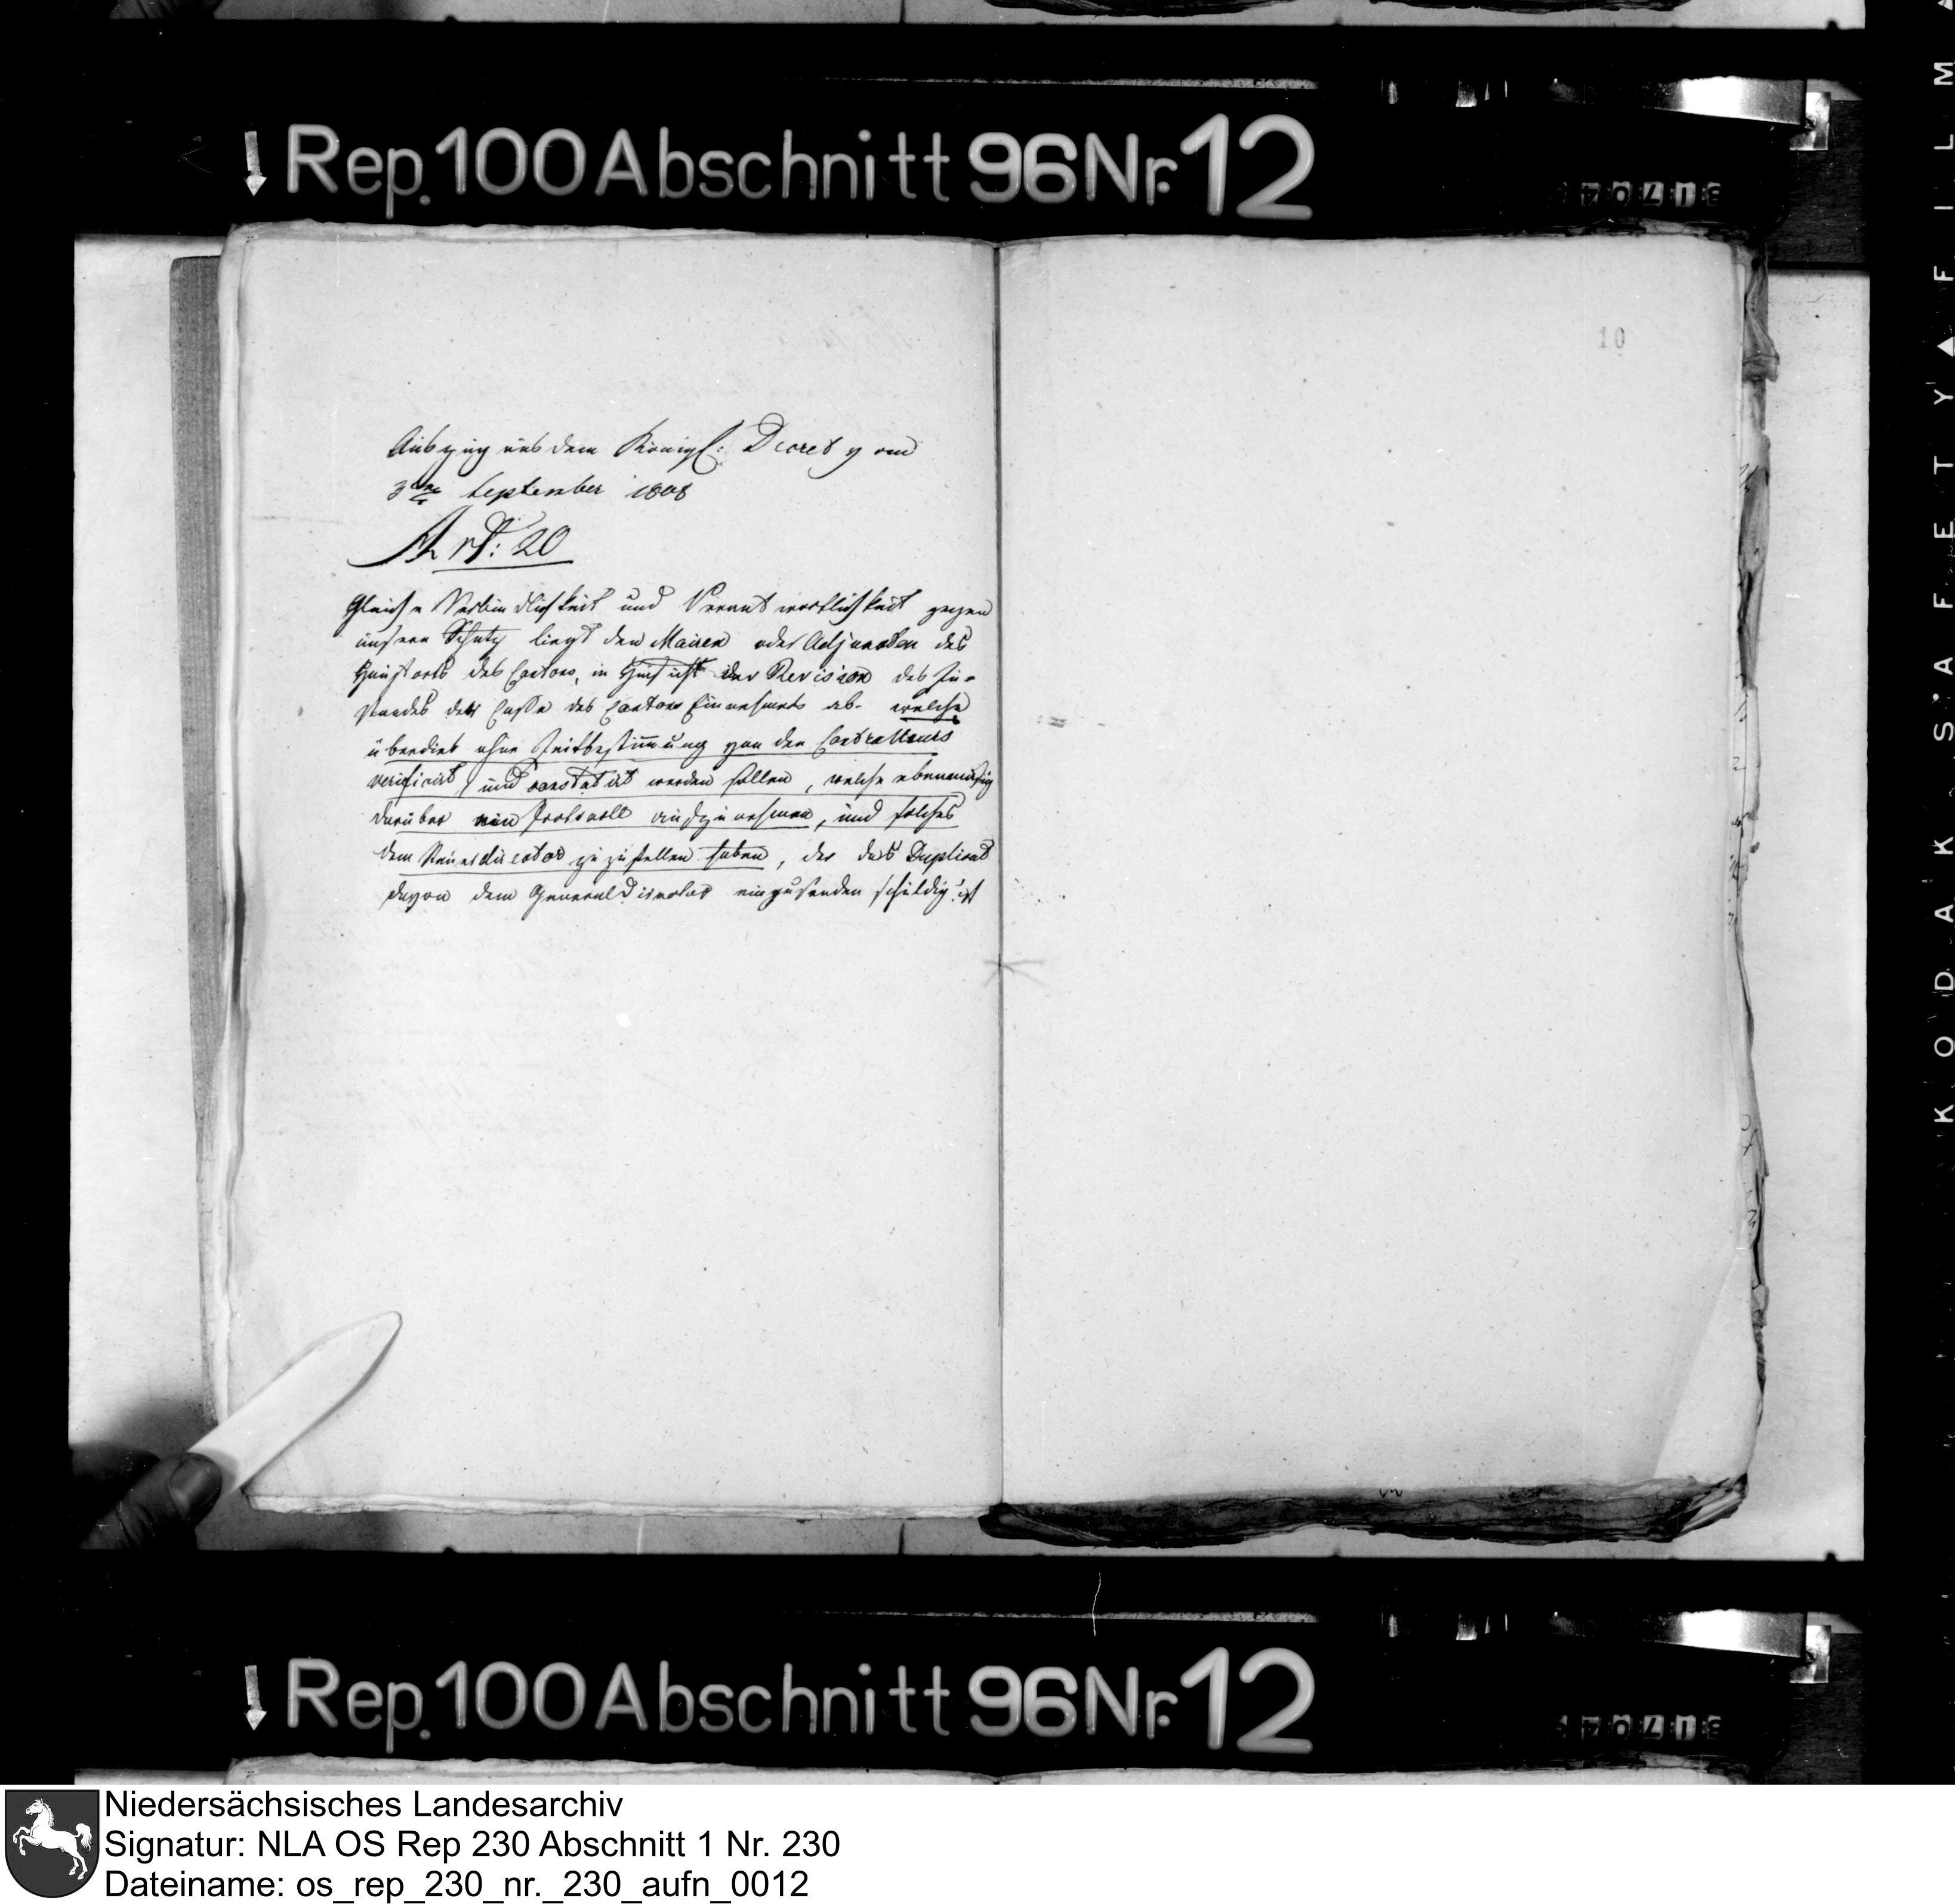 Rep. 100 Abschnitt 96 Nr. 12
10
Auszug aus dem Königl: Decret vom
3ten September 1808
Art: 20
Gleiche Verbindlichkeit und Verantwortlichkeit gegen
unsern Schatz liegt den Mairen oder Adjuncten des
Hauptorts des Cantons, in Hinsicht der Revision des Zu-
standes der Casse des Cantons Einnehmers ob. welche
überdies ohne Zeitbestimmung von den Controlleurs
verificirt und constatirt werden sollen, welche ebenmäßig
darüber ein Protocoll aufzunehmen, und solches
dem Steuerdirector zuzustellen haben, der das Duplicat
davon dem General Director einzusenden schuldig ist
Rep. 100 Abschnitt 96 Nr. 12
KODAK SAFETY FILM
Niedersächsisches Landesarchiv
Signatur: NLA OS Rep 230 Abschnitt 1 Nr. 230
Dateiname: os_rep_230_nr._230_aufn_0012